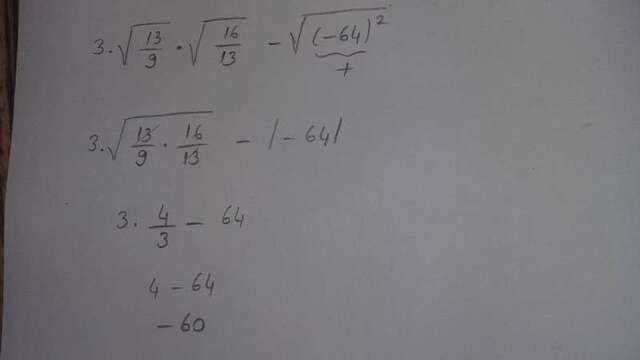 3·√(13/9) · √(16/13) − √((−64)²)
+
3·√(13/9 · 16/13) − |−64|
3· 4/3 − 64
4 − 64
− 60